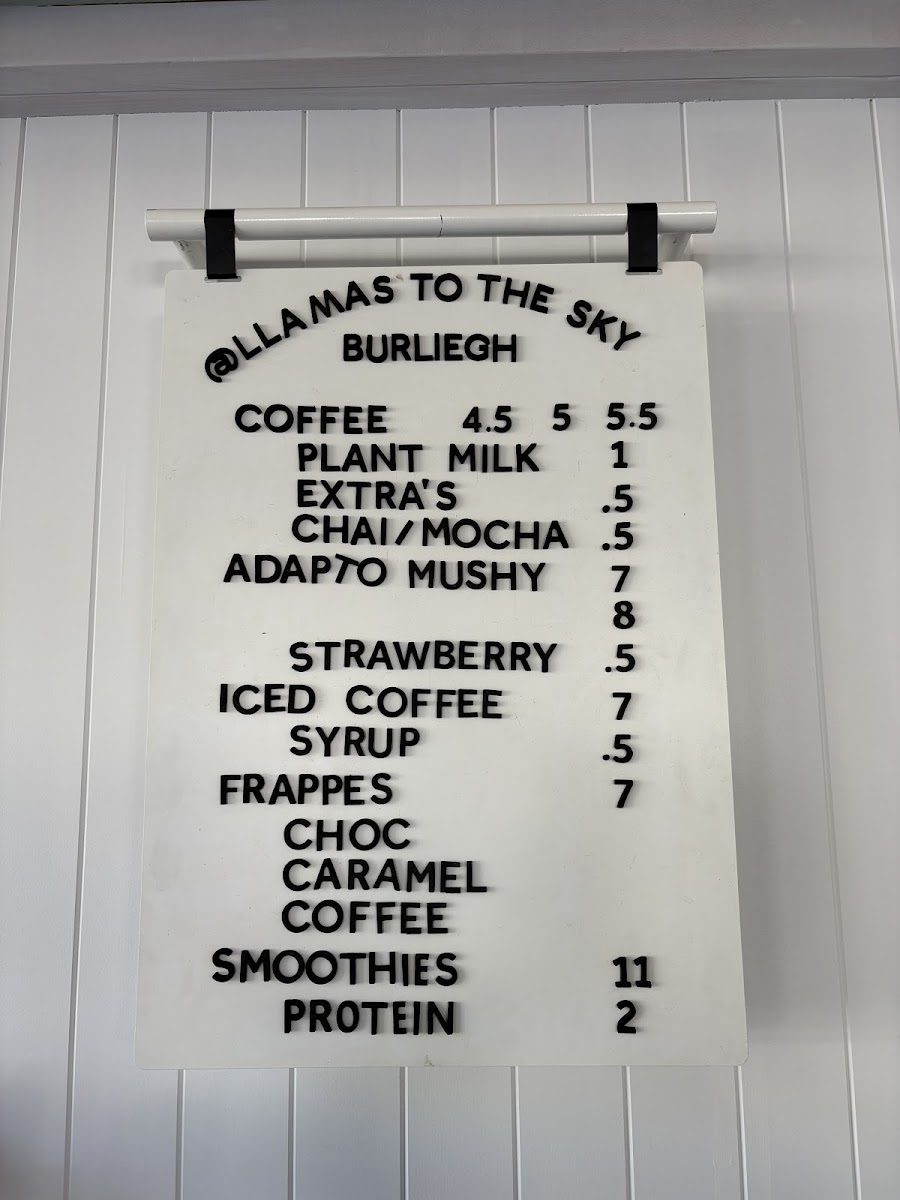 @LLAMAS TO THE SKY
BURLIEGH
COFFEE 4.5 5 5.5
PLANT MILK 1
EXTRA'S .5
CHAI/MOCHA .5
ADAPTO MUSHY 7
8
STRAWBERRY .5
ICED COFFEE 7
SYRUP .5
FRAPPES 7
CHOC
CARAMEL
COFFEE
SMOOTHIES 11
PROTEIN 2